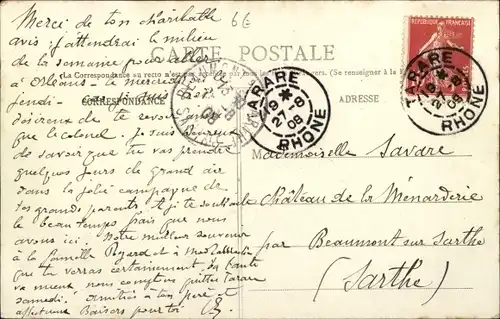 Merci de ton charitable
avis j'attendrai le milieu
de la semaine pour aller
à Orléans - le mercredi le
jeudi - je suis
désireux de te revoir
que le colonel. Je suis heureux
de savoir que tu vas prendre
quelques jours de grand air
dans la jolie campagne de
tes grands parents et je te souhaite
le beau temps que nous
avons ici. Notre meilleur souvenir
à la famille et à
que tu verras certainement. Sa santé
va mieux nous comptons quitter Tarare
samedi. Amitiés à ton père et
affectueux Baisers pour toi
66
CARTE POSTALE
La Correspondance au recto n'est pas (Se renseigner à la
CORRESPONDANCE
ADRESSE
REPUBLIQUE FRANÇAISE
TARARE
19 *
27 -8
08
RHÔNE
TARARE
19 * 8
27
08
RHÔNE
Mademoiselle Savare
Château de la Ménarderie
par Beaumont sur Sarthe
(Sarthe)